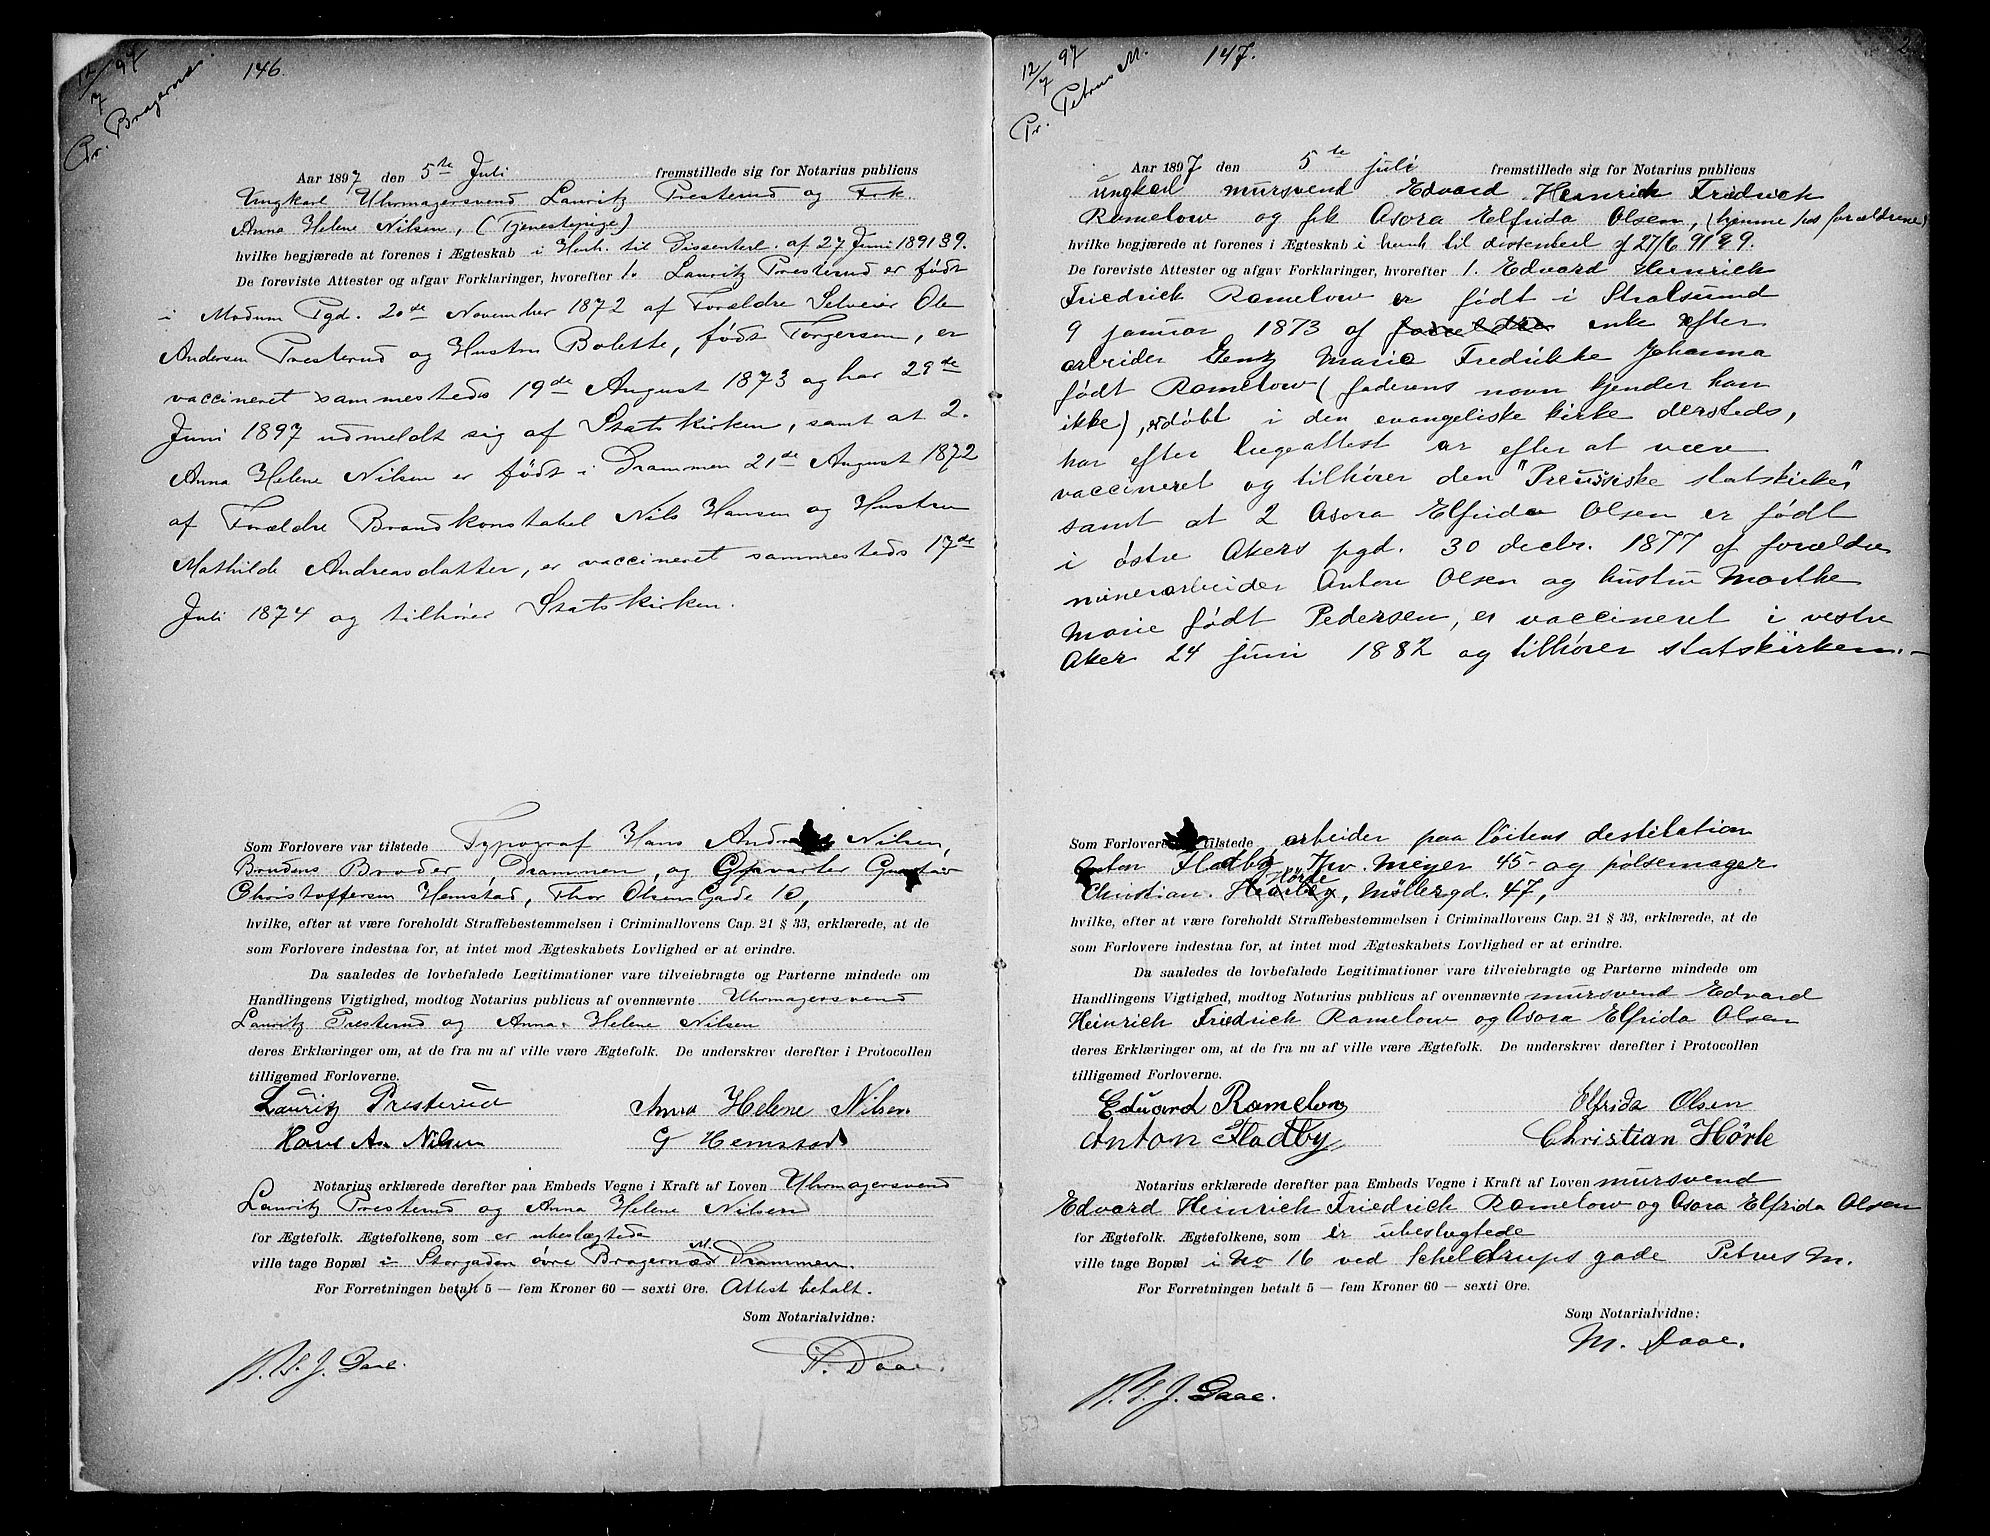 12/7 97
Pr. Bragernes.
146.
Aar 1897 den 5te Juli fremstillede sig for Notarius publicus
Ungkarl Uhrmagersvend Lauritz Presterud og Frk.
Anna Helene Nilsen, (Tjenestepige)
hvilke begjærede at forenes i Ægteskab i Henh. til Dissenterl. af 27 Juni 1891 § 9.
De foreviste Attester og afgav Forklaringer, hvorefter 1. Lauritz Presterud er født
i Modum Pgd. 20de November 1872 af Forældre Selveier Ole
Andersen Presterud og Hustru Bolette, født Torgersen, er
vaccineret sammesteds 19de August 1873 og har 29de
Juni 1897 udmeldt sig af Statskirken, samt at 2.
Anna Helene Nilsen er født i Drammen 21de August 1872
af Forældre Brandkonstabel Nils Hansen og Hustru
Mathilde Andreasdatter, er vaccineret sammesteds 17de
Juli 1874 og tilhører Statskirken.
Som Forlovere var tilstede Typograf Hans Nilsen,
Brudens Broder, Drammen, og Gustav
Christoffersen Hemstad, Thor Olsens Gade 10,
hvilke, efter at være foreholdt Straffebestemmelsen i Criminallovens Cap. 21 § 33, erklærede, at de
som Forlovere indestaa for, at intet mod Ægteskabets Lovlighed er at erindre.
Da saaledes de lovbefalede Legitimationer vare tilveiebragte og Parterne mindede om
Handlingens Vigtighed, modtog Notarius publicus af ovennævnte Uhrmagersvend
Lauritz Presterud og Anna Helene Nilsen
deres Erklæringer om, at de fra nu af ville være Ægtefolk. De underskrev derefter i Protocollen
tilligemed Forloverne.
Lauritz Presterud Anna Helene Nilsen
Hans An Nilsen G Hemstad
Notarius erklærede derefter paa Embeds Vegne i Kraft af Loven Uhrmagersvend
Lauritz Presterud og Anna Helene Nilsen
for Ægtefolk. Ægtefolkene, som er ubeslægtede
ville tage Bopæl i Storgaden øvre Bragernæs M. Drammen.
For Forretningen betalt 5 — fem Kroner 60 — sexti Øre. Attest betalt.
Som Notarialvidne:
Daae. Daae.
12/7 97
Pr. Petrus M.
147.
Aar 1897 den 5te juli fremstillede sig for Notarius publicus
ungkarl mursvend Edvard Heinrich Fridrich
Ramelow og frk Asora Elfrida Olsen, (hjemme hos forældrene)
hvilke begjærede at forenes i Ægteskab i henh til dissenterl af 27/6 91 § 9.
De foreviste Attester og afgav Forklaringer, hvorefter 1. Edvard Heinrich
Friedrich Ramelow er født i Stralsund
9 januar 1873 af forældre enke efter
arbeider Genz Marie Fredrikke Johanna
født Ramelow (faderens navn kjender han
ikke), er døbt i den evangeliske kirke dersteds,
har efter lægeattest ar efter at være
vaccineret og tilhører den "Preussiske statskirke"
samt at 2 Asora Elfrida Olsen er født
i østre Akers pgd. 30 decbr. 1877 af forældre
minerarbeider Anton Olsen og hustru Marthe
Marie født Pedersen, er vaccineret i vestre
Aker 24 juni 1882 og tilhører statskirken.—
Som Forlovere tilstede arbeider paa Løitens destilation
Anton Fladby, Thv. Meyer 45— og pølsemager
Christian Hörle, Møllergd. 47,
hvilke, efter at være foreholdt Straffebestemmelsen i Criminallovens Cap. 21 § 33, erklærede, at de
som Forlovere indestaa for, at intet mod Ægteskabets Lovlighed er at erindre.
Da saaledes de lovbefalede Legitimationer vare tilveiebragte og Parterne mindede om
Handlingens Vigtighed, modtog Notarius publicus af ovennævnte mursvend Edvard
Heinrich Friedrich Ramelow og Asora Elfrida Olsen
deres Erklæringer om, at de fra nu af ville være Ægtefolk. De underskrev derefter i Protocollen
tilligemed Forloverne.
Eduard Ramelow Elfrida Olsen
Anton Fladby Christian Hörle
Notarius erklærede derefter paa Embeds Vegne i Kraft af Loven mursvend
Edvard Heinrich Friedrich Ramelow og Asora Elfrida Olsen
for Ægtefolk. Ægtefolkene, som er ubeslægtede
ville tage Bopæl i No 16 ved Scheldrups gade Petrus M.
For Forretningen betalt 5 — fem Kroner 60 — sexti Øre.
Som Notarialvidne:
M. Daae.
Daae.